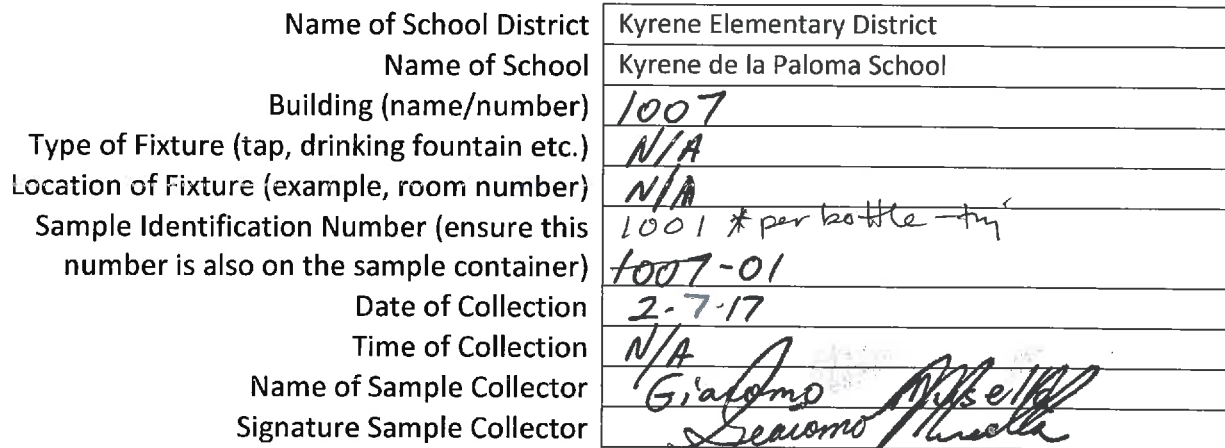 Name of School District Kyrene Elementary District
Name of School Kyrene de la Paloma School
Building (name/number) 1007
Type of Fixture (tap, drinking fountain etc.) N/A
Location of Fixture (example, room number) N/A
Sample Identification Number (ensure this 1001 * per bottle
number is also on the sample container) 1007-01
Date of Collection 2-7-17
Time of Collection N/A
Name of Sample Collector Giacomo
Signature Sample Collector Giacomo